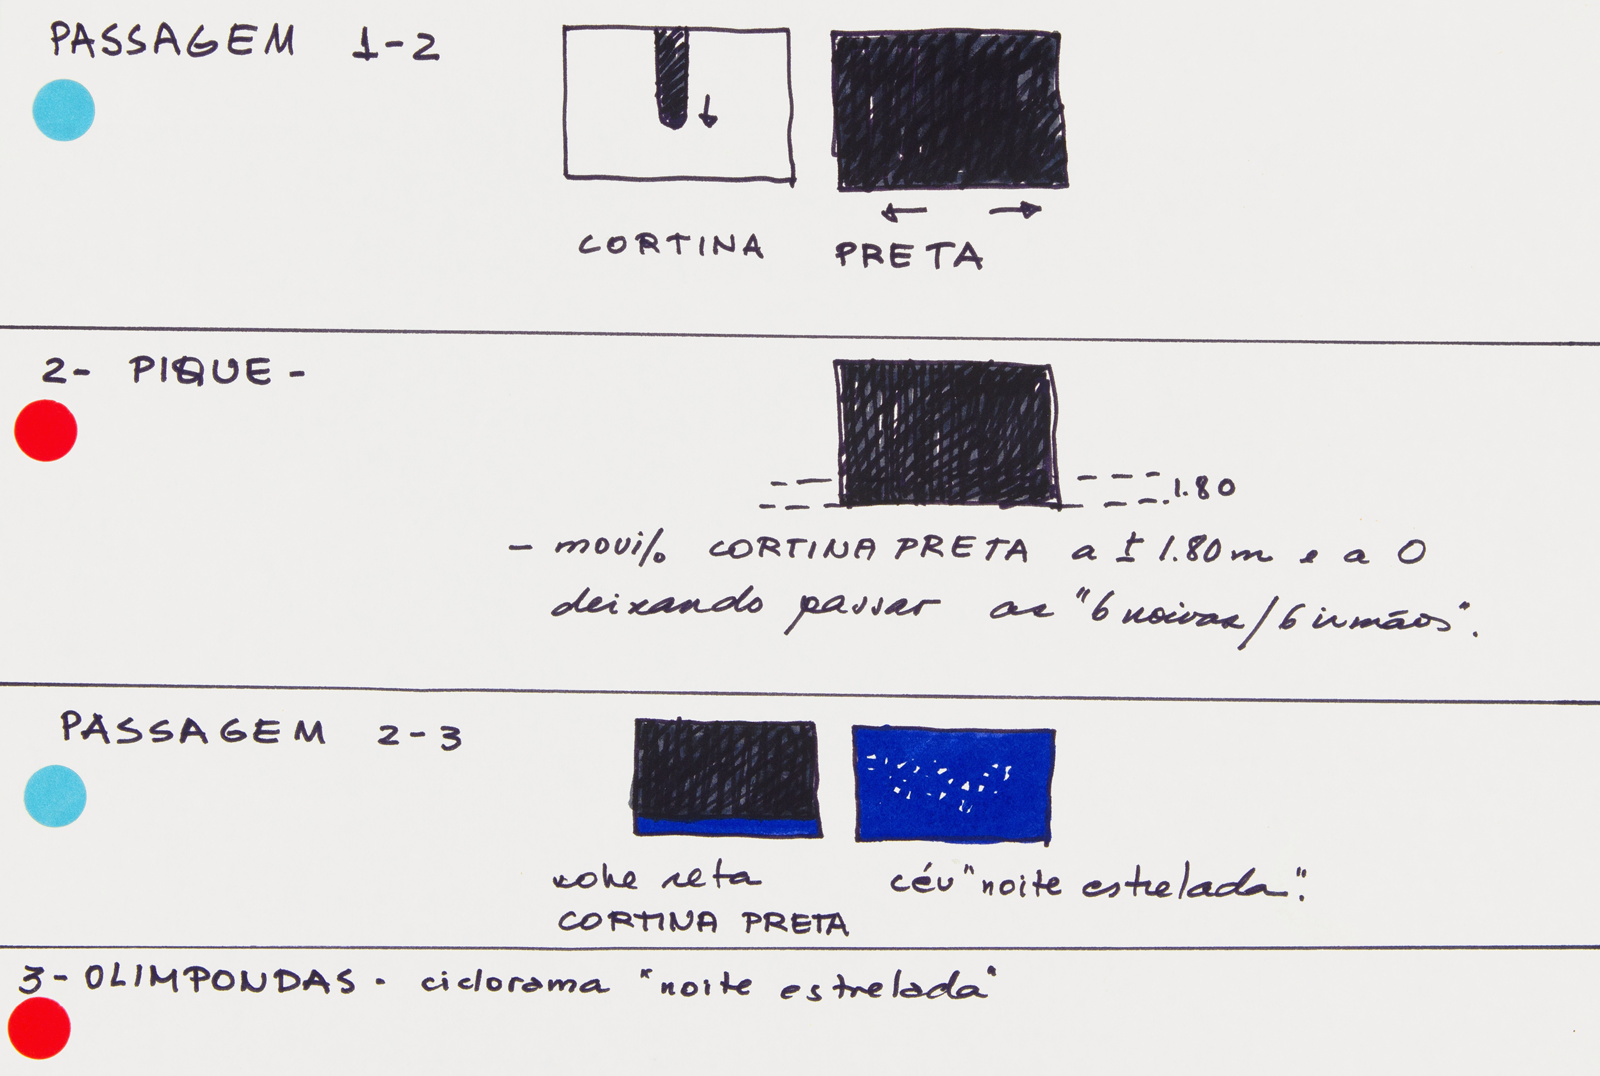 PASSAGEM 1-2
CORTINA PRETA
2- PIQUE -
1.80
- movi/o CORTINA PRETA a ± 1.80m e a 0
deixando passar as "6 noivas/6 irmãos".
PASSAGEM 2-3
sobe reta
CORTINA PRETA
céu "noite estrelada".
3- OLIMPONDAS - ciclorama "noite estrelada"